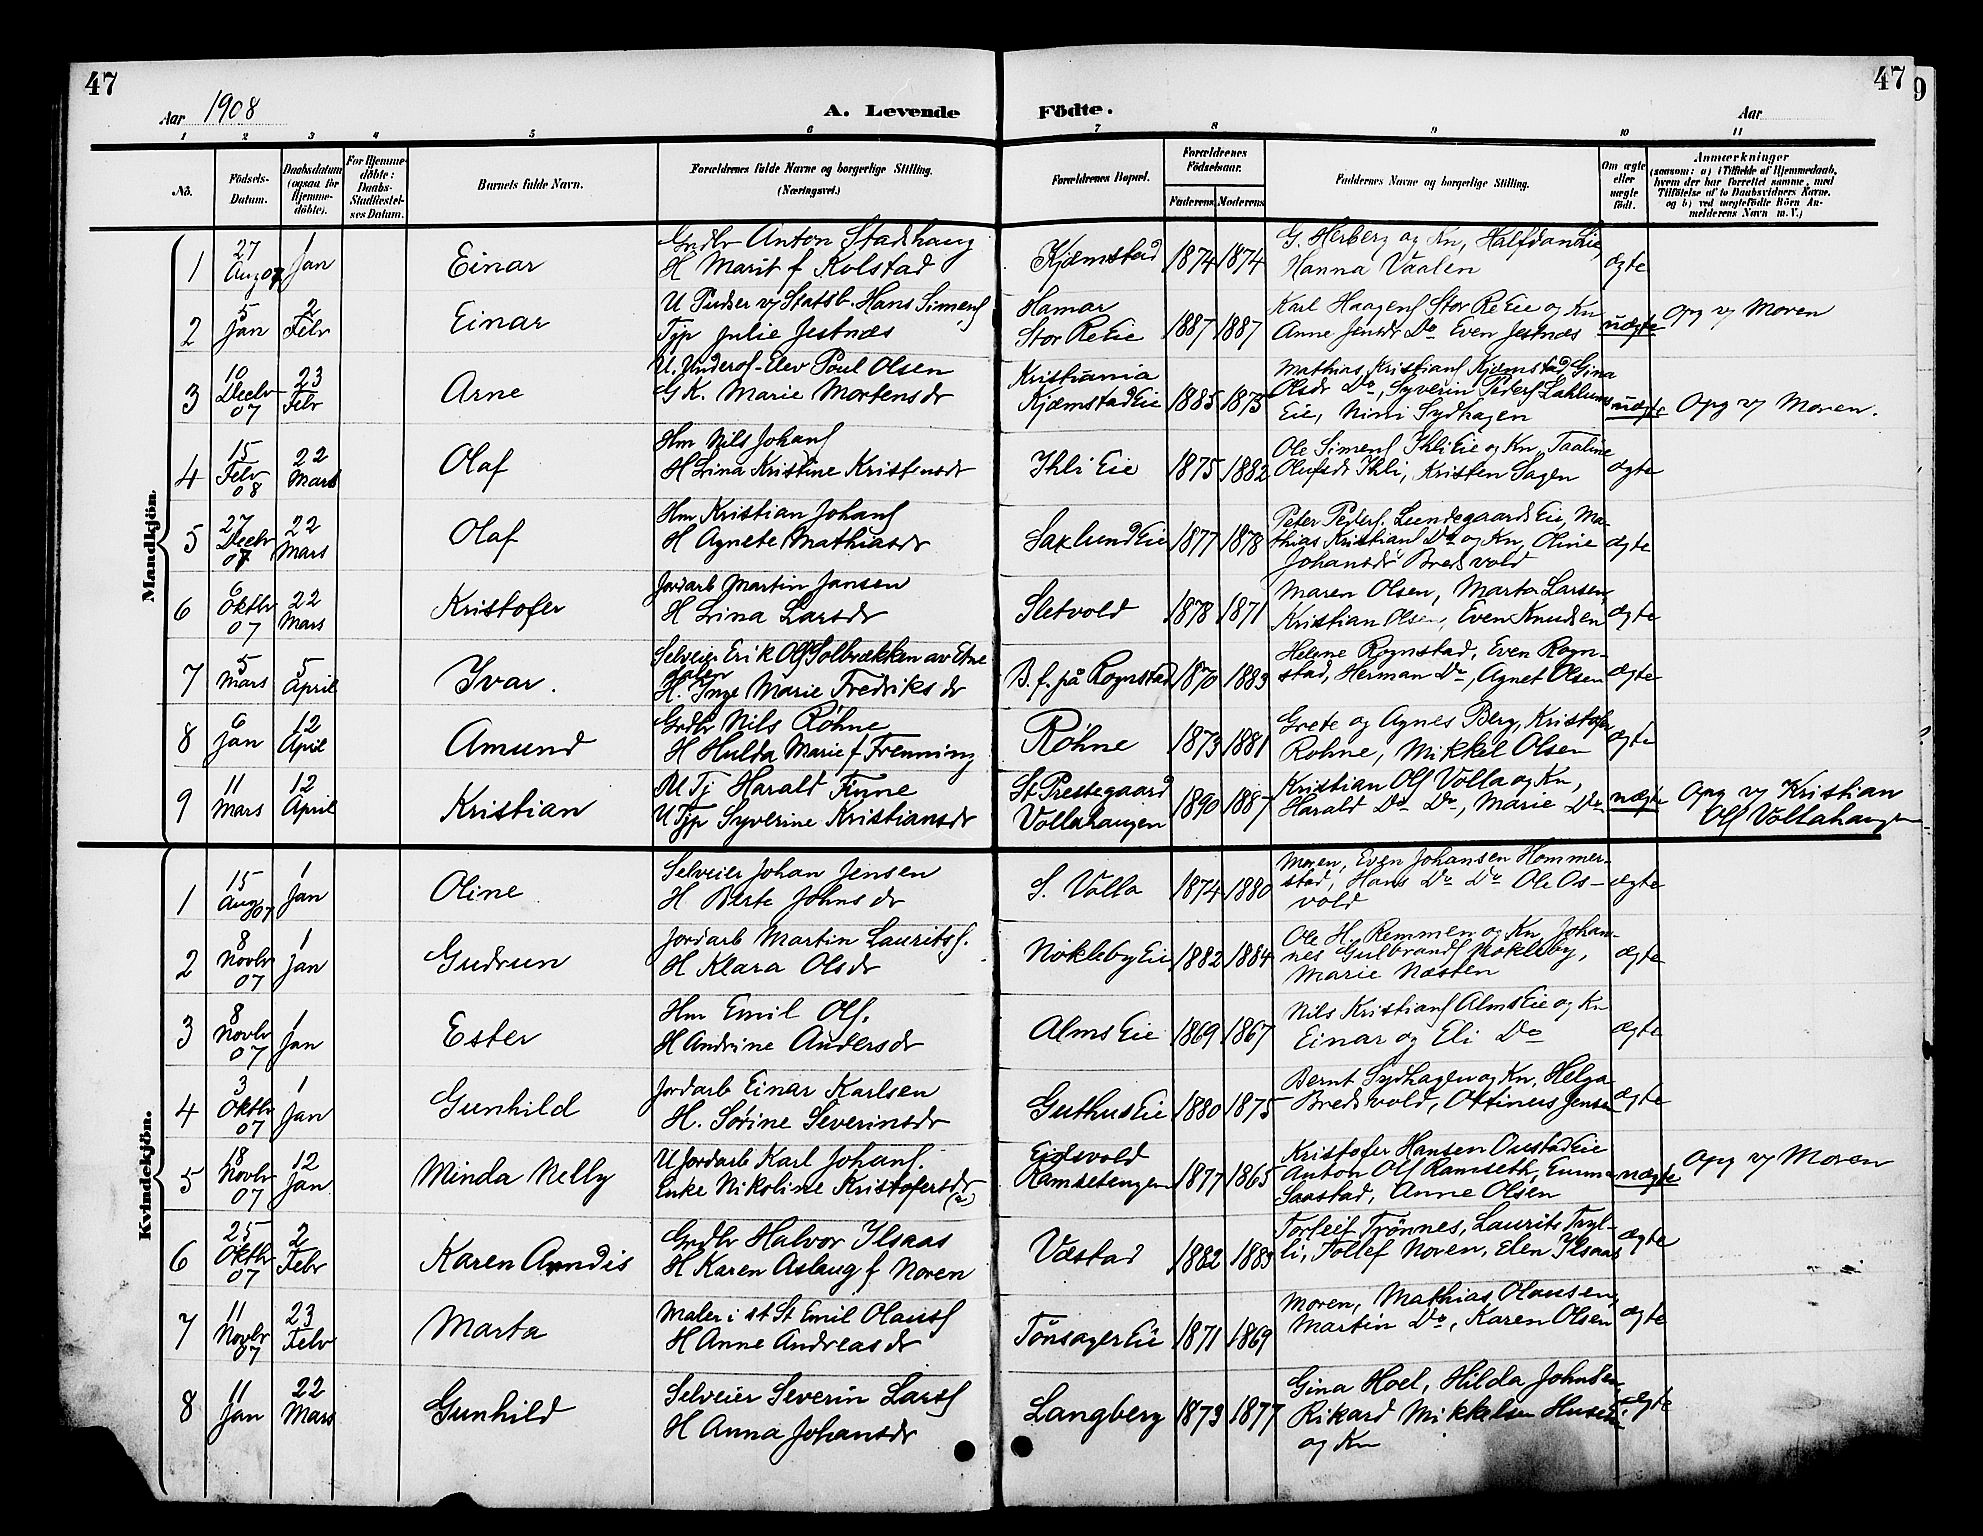 47
47
9
Aar 1908
A. Levende
Födte.
Aar
1 2 3 4 5 6 7 8 9 10 11
No.
Födsels-
Datum.
Daabsdatum
(ogsaa for
Hjemme-
döbte).
For Hjemme-
döbte:
Daabs-
Stadfæstel-
ses Datum.
Barnets fulde Navn.
Forældrenes fulde Navne og borgerlige Stilling.
(Næringsvei.)
Forældrenes Bopæl.
Forældrenes
Födselsaar.
Faderens Moderens
Faddernes Navne og borgerlige Stilling.
Om ægte
eller
uægte
födt.
Anmærkninger
(saasom: a) i Tilfælde af Hjemmedaab,
hvem der har forrettet samme, med
Tilföielse af to Daabsvidners Navne.
og b) ved uægtefödte Börn An-
melderens Navn m. V.)
Mandkjön.
1 27 Aug 07 1 Jan Einar
Grdbr Anton Stadshaug
H Marit f Kolstad
Kjæmstad 1874 1874
G. Herberg og Kn, Halfdan Lie,
Hanna Vaalen
ægte
2 5 Jan 2 Febr Einar
U Pudser v/ Statsb. Hans Simens
Tjp Julie Jestnæs
Hamar
Stor Re Eie
1887 1887
Karl Haagens Stor Re Eie og Kn
Anne Jensdr Do Even Jestnæs
uægte
Opg v/ Moren
3 10 Decbr 07 23 Febr Arne
U. Underof-Elev Poul Olsen
G K. Marie Mortensdr
Kristiania
Kjæmstad Eie
1885 1873
Mathias Kristians Kjæmstad, Gina
Olsdr Do, Syverin Peders Lahlums
Eie, Nini Sydhagen
uægte
Opg v/ Moren.
4 15 Febr 08 22 Mars Olaf
Hm Nils Johans
H Lina Kristine Kristensdr
Ihli Eie 1875 1882
Ole Simens Ihli Eie og Kn, Taaline
Olufsdr Ihli, Kristen Sagen
ægte
5 27 Decbr 07 22 Mars Olaf
Hm Kristian Johans
H Agnete Mathiasdr
Saxlund Eie 1877 1878
Peter Peders. Lundegaards Eie, Ma-
thias Kristians Do og Kn, Oline
Johansdr Bredsvold
ægte
6 6 Oktbr 07 22 Mars Kristofer
Jordarb Martin Jansen
H Lina Larsdr
Sletvold 1878 1871
Maren Olsen, Marta Larsen,
Kristian Olsen, Even Knudsen
ægte
7 5 Mars 5 April Ivar.
Selveier Erik Ols Solbrækken av Etne
dalen
H. Inge Marie Fredriksdr
B. f. på Rognstad 1870 1883
Helene Rognstad, Even Rogn-
stad, Herman Do, Agnet Olsen
ægte
8 6 Jan 12 April Amund
Grdbr Nils Röhne
H Hulda Marie f Frenning
Röhne 1873 1881
Grete og Agnes Berg, Kristofer
Rohne, Mikkel Olsen
ægte
9 11 Mars 12 April Kristian
U Tj Harald Finne
U Tjp Syverine Kristiansdr
St. Prestegaard
Vollahaugen
1890 1887
Kristian Ols Volla og Kn,
Harald Do Do, Marie Do
uægte
Opg v/ Kristian
Ols Vollahaugen
Kvindekjön.
1 15 Aug 07 1 Jan Oline
Selveier Johan Jensen
H Berte Johnsdr
S. Volla 1874 1880
Moren, Even Johansen Hommer-
stad, Hans Do Do Ole Os-
vold
ægte
2 8 Novbr 07 1 Jan Gudrun
Jordarb Martin Laurits.
H Klara Olsdr
Nökleby Eie 1882 1884
Ole H. Remmen og Kn, Johan-
nes Gulbrands Nökleby,
Marie Næsten
ægte
3 8 Novbr 07 1 Jan Ester
Hm Emil Ols.
H Andrine Andersdr
Alms Eie 1869 1867
Nils Kristians Alms Eie og Kn
Einar og Eli Do
ægte
4 3 Oktbr 07 1 Jan Gunhild
Jordarb Einar Karlsen
H. Sörine Severinsdr
Guthus Eie 1880 1875
Bernt Sydhagen og Kn, Helga
Bredsvold, Ottinus Jensen
ægte
5 18 Novbr 07 12 Jan Minda Nelly
U Jordarb Karl Johans.
Enke Nikoline Kristofersdr
Eidsvold
Ramsetengen
1877 1865
Kristofer Hansen Oustad Eie
Anton Ols Ramseth, Emma
Saastad, Anne Olsen
uægte
Opg v/ Moren
6 25 Oktbr 07 2 Febr Karen Arndis
Grdbr Halvor Ilsaas
H Karen Aslaug f Noren
Væstad 1882 1883
Torleif Trönnes, Laurits Tryl-
li, Tollef Noren, Elen Ilsaas
ægte
7 11 Novbr 07 23 Febr Marta
Maler i st St Emil Olaus
H Anne Andreasdr
Tönsager Eie 1871 1869
Moren, Mathias Olausen,
Martin Do, Karen Olsen
ægte
8 11 Jan 22 Mars Gunhild
Selveier Severin Lars
H Anna Johansdr
Langberg 1873 1877
Gina Hoel, Hilda Johnsen,
Rikard Mikkelsen
og Kn
ægte